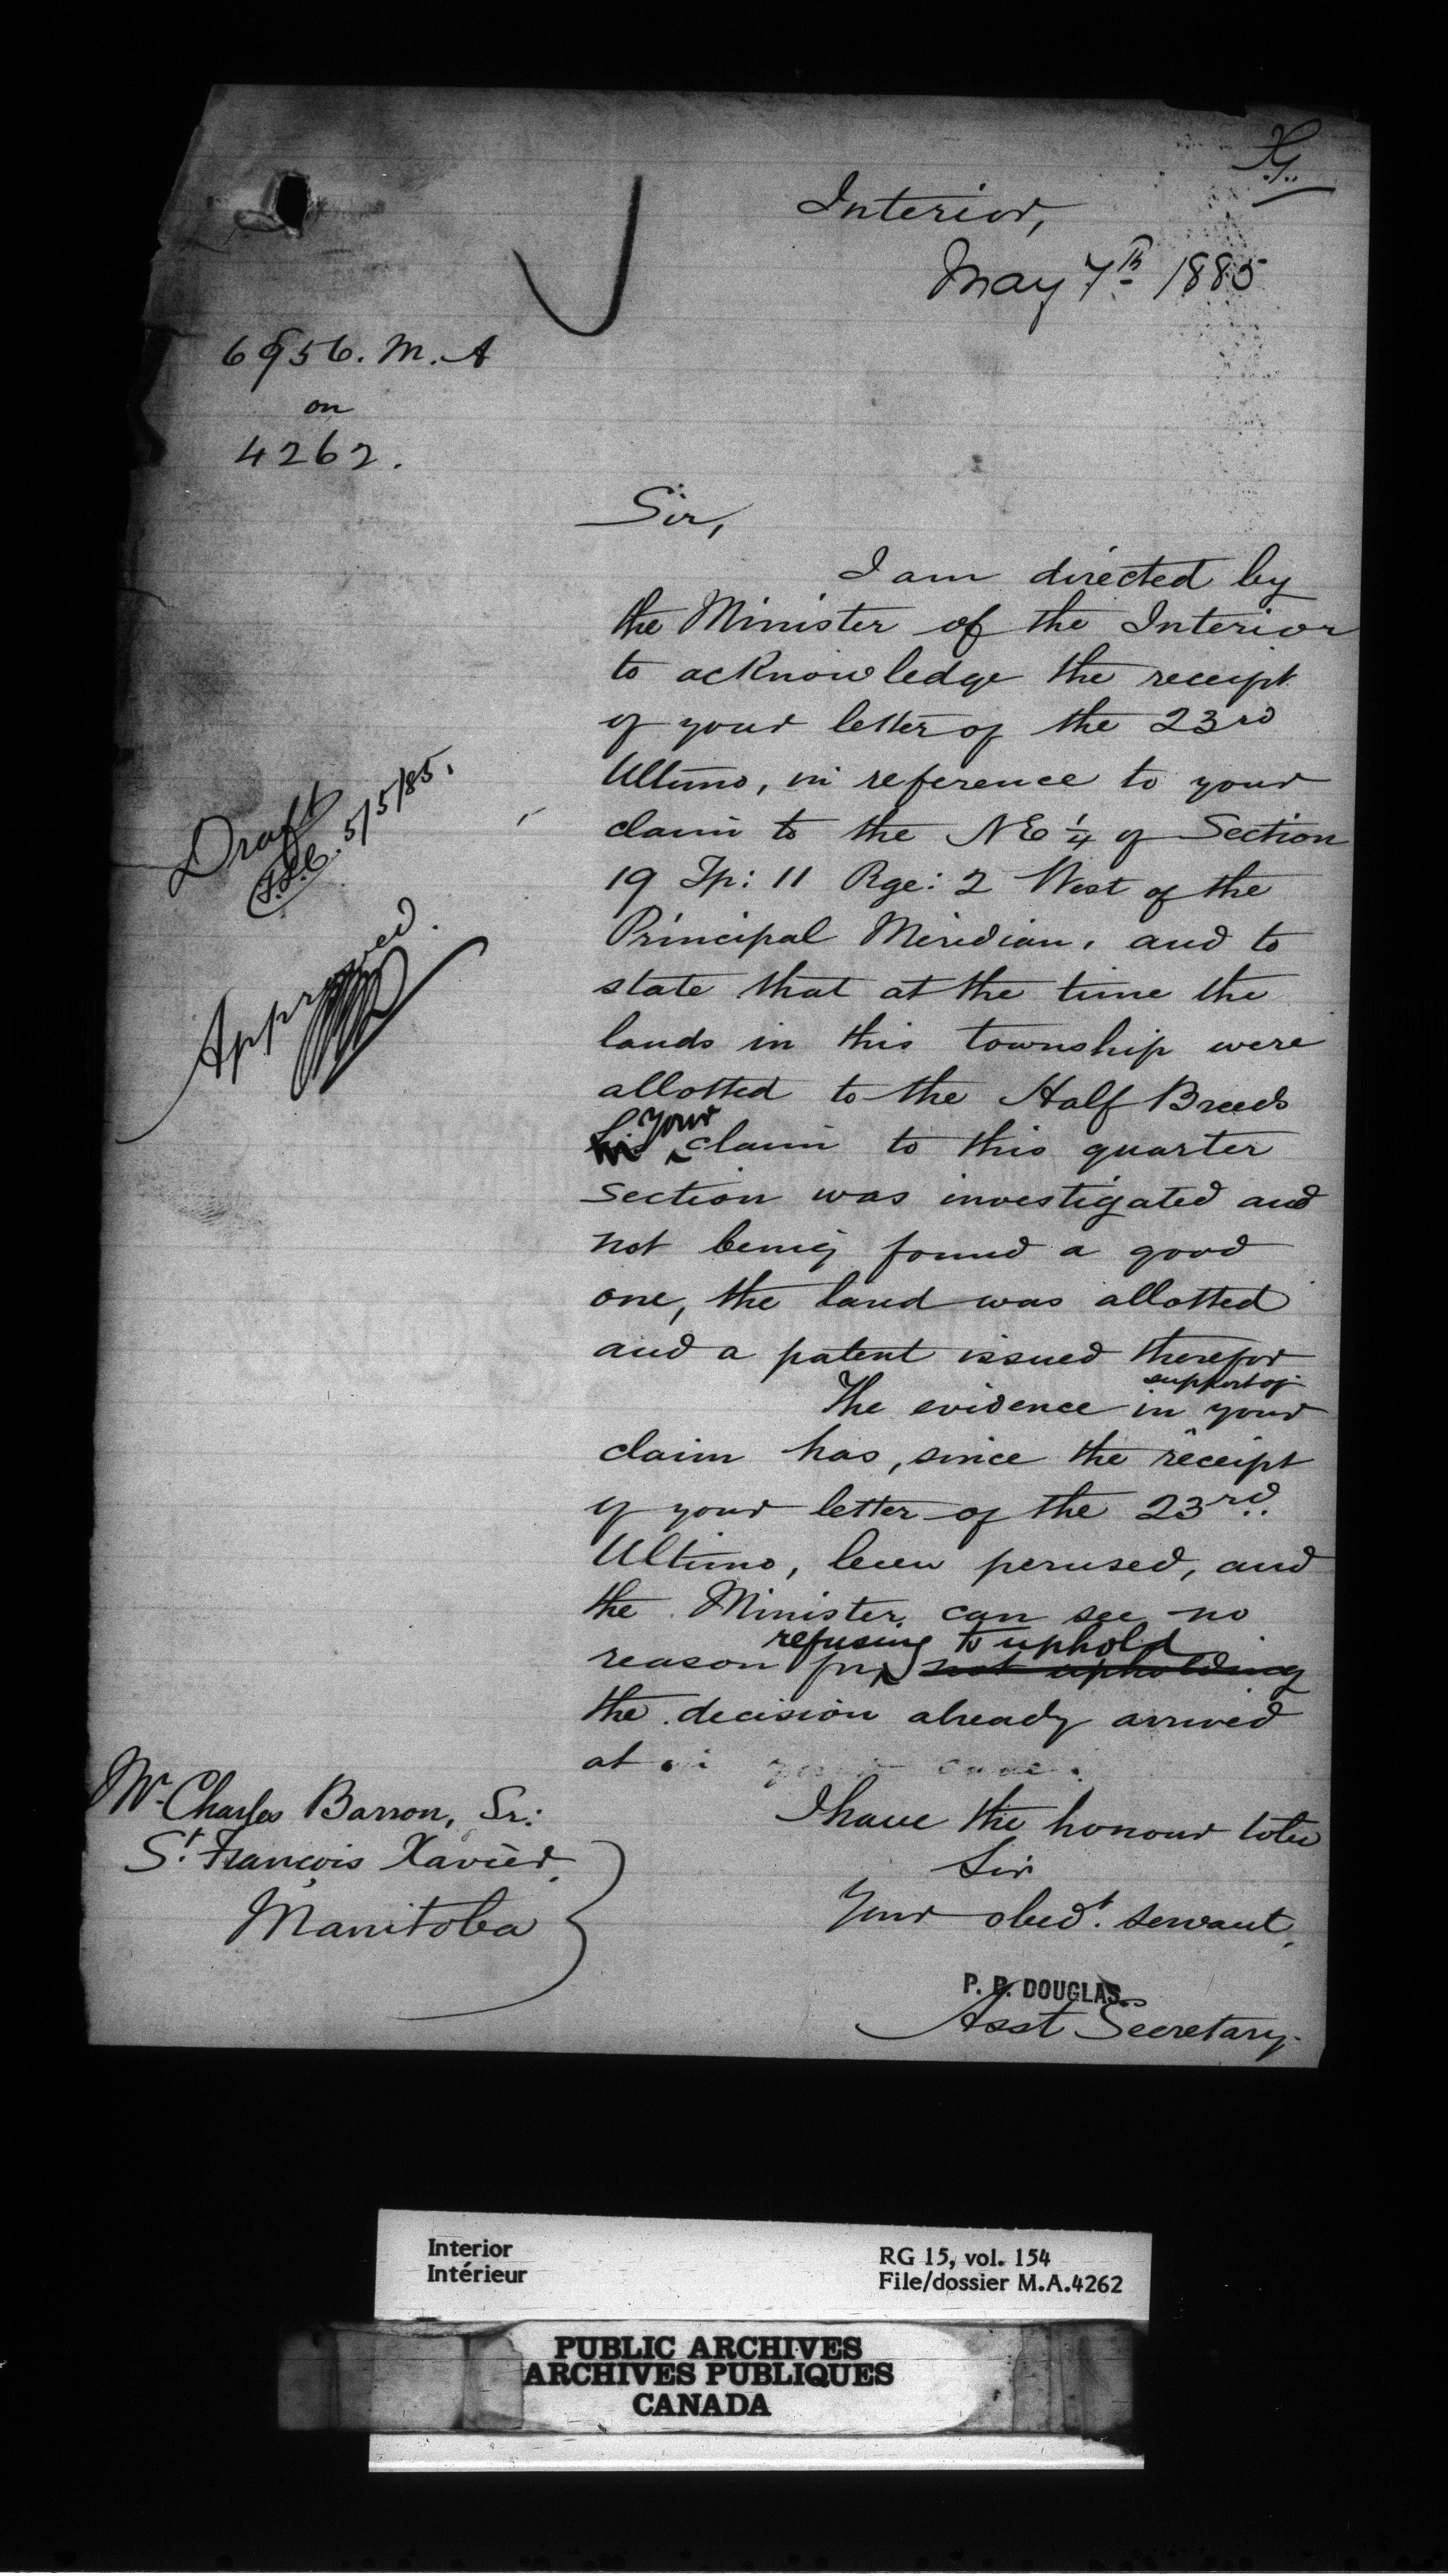 Interior,
May 7th 1885
6956. M. A
on
4262.
Sir,
I am directed by
the Minister of the Interior
to acknowledge the receipt
of your letter of the 23rd
Ultimo, in reference to your
claim to the NE 1/4 of Section
19 Tp: 11 Rge: 2 West of the
Principal Meridian, and to
state that at the time the
lands in this township were
allotted to the Half Breeds
his your claim to this quarter
section was investigated and
not being found a good
one, the land was allotted
and a patent issued therefor
The evidence in support of your
claim has, since the receipt
of your letter of the 23rd
Ultimo, been perused, and
the Minister can see no
reason for refusing to uphold not upholding
the decision already arrived
at
I have the honour to be
Sir
Your obedt. servant,
P. B. DOUGLAS.
Asst Secretary.
Draft
5/5/85.
Approved.
Mr Charles Barron, Sr:
St. François Xavier,
Manitoba
Interior
Intérieur
RG 15, vol. 154
File/dossier M.A.4262
PUBLIC ARCHIVES
ARCHIVES PUBLIQUES
CANADA